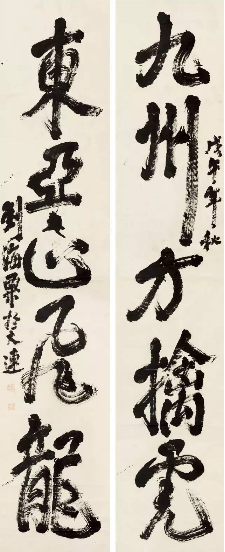 九州方擒虎
戊午年秋
東亞正龍
劉海粟於大連